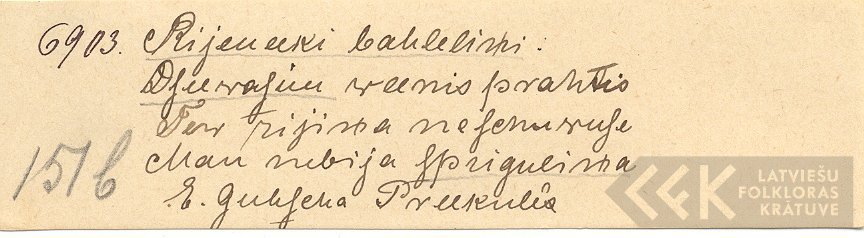 6903. Rijeneeki bahleliņi:
Dseewasim weenis prahtis
Tew rijiņa neschuwuse
Man nebija spriguliņa
E. Guhscha Preekulēs
151b
LATVIEŠU
FOLKLORAS
KRĀTUVE